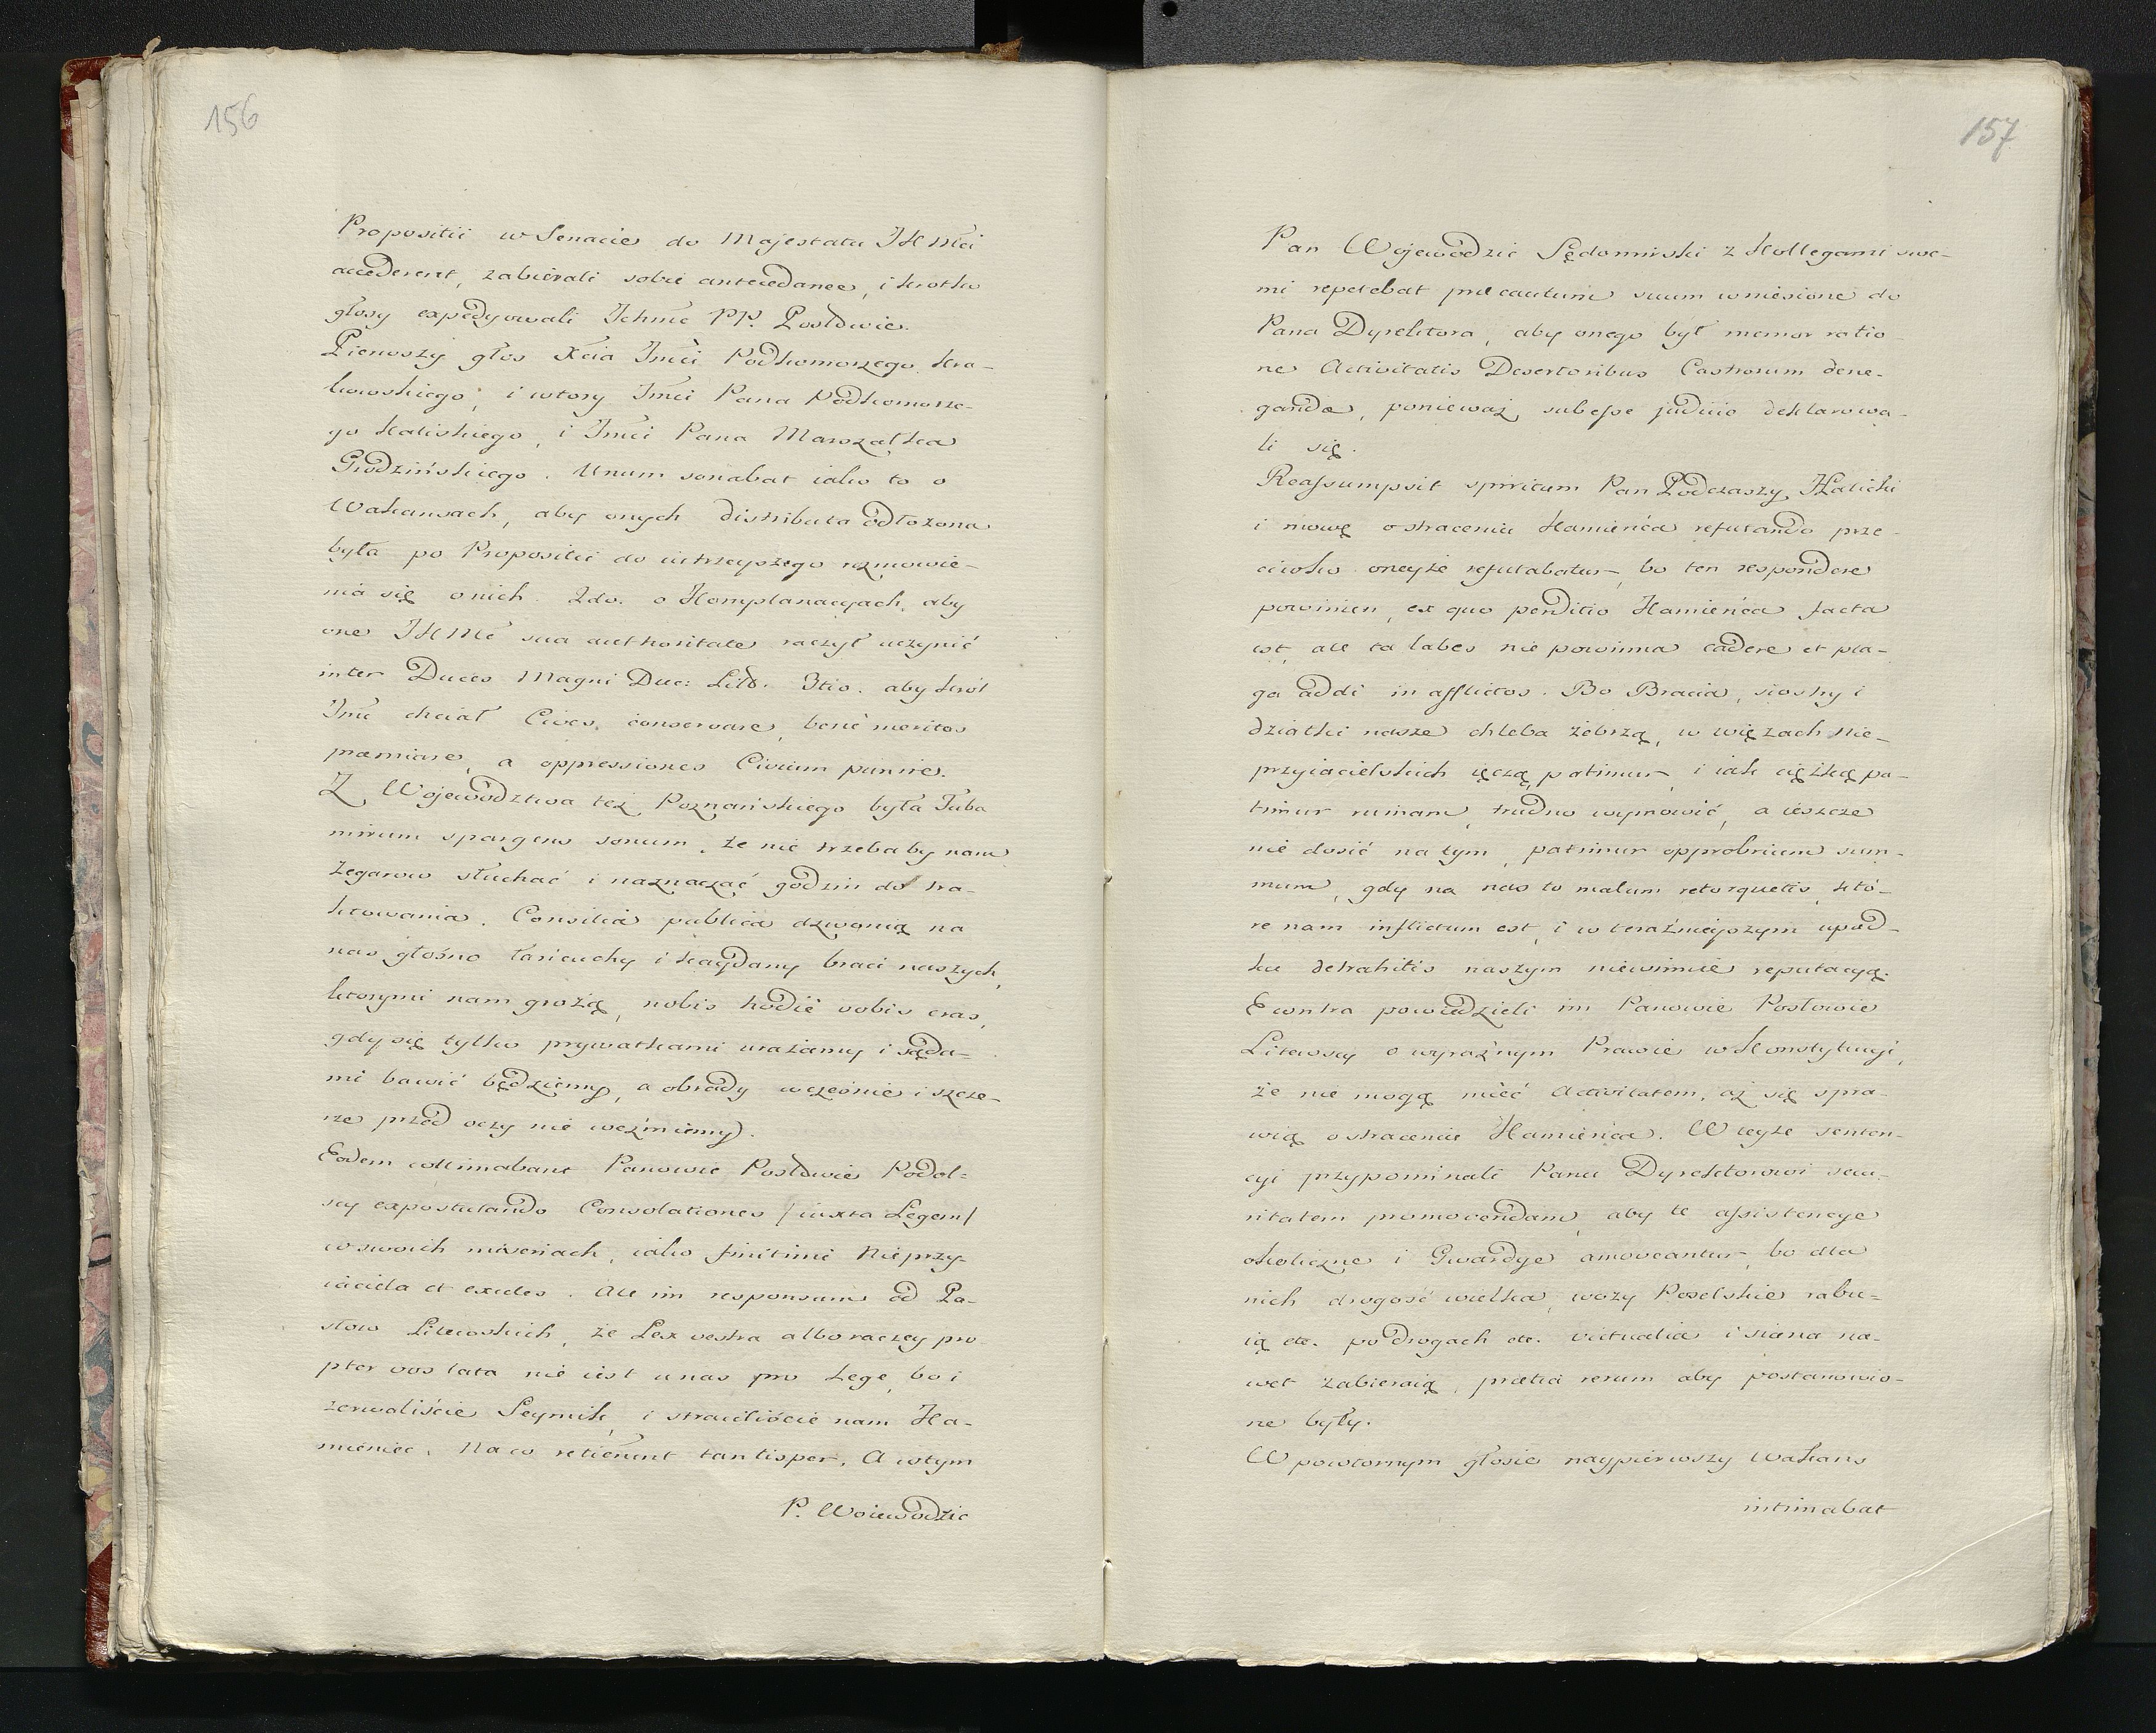 156
Propositii w Senacie do Majestatu JKMci
accederent, zabierali sobie antecedanee, i krotko
głosy expedyowali Ichmć PP. Posłowie.
Pierwszy głos Xcia Jmći Podkomorzego Kra-
kowskiego, i wtory Jmći Pana Podkomorze-
go Kaliskiego, i Jmći Pana Marszałka
Grodzińskiego. Unum sonabat iako to o
Wakansach, aby onych distributa odłożona
była po Propositii do iutrzeyszego rozmowie-
nia się o nich. 2do. o Komplanacyach, aby
one JKMć sua authoritate raczył uczynić
inter Duces Magni Duc: Lith. 3tio. aby Krol
Jmć chciał Cives conservare, bene meritos
præmiare, a oppressiones Civium punire.
Z Wojewodztwa też Poznańskiego była Tuba
mirum spargens sonum, że nie trzeba by nam
Zegarow słuchać i naznaczać godzin do tra-
ktowania. Consilia publica dzwonią na
nas głośno łańcuchy i kaydany braci naszych,
ktorymi nam grożą, nobis hodie vobis cras,
gdy się tylko prywatkami urażamy i sąda-
mi bawić będziemy, a obrady wcześnie i szcze-
rze przed oczy nie weźmiemy.
Eodem collimabant Panowie Posłowie Podol-
scy expostulando Consolationes /iuxta Legem/
w swoich miseriach, iako finitimi Nieprzy-
iaciela et exules. Ale im responsum od Po-
słow Litewskich, że Lex vestra albo raczey pro-
pter vos lata nie iest u nas pro Lege, bo i
zerwaliście Seymik, i straciliście nam Ka-
mieniec. Na co reticuint tantisper. A wtym
P. Woiewodzic
157
Pan Wojewodzic Sędomirski z Kollegami swe-
mi repetebat præcautum suum wniesione do
Pana Dyrektora, aby onego był memor ratio-
ne Activitatis Desertoribus Castrorum dene-
ganda, ponieważ subesse judicio deklarowa-
li się.
Reassumpsit spiritum Pan Podczaszy Halicki
i mowę o straceniu Kamieńca refutando prze-
ciwko oneyże refutabatur, bo ten respondere
powinien, ex quo perditio Kamieńca facta
est, ale ta labes nie powinna cadere et pla-
ga addi in afflictos. Bo Bracia, siostry i
dziatki nasze chleba żebrzą, w więzach Nie-
przyiacielskich ięczą, patimur, i iak ciężką pa-
timur ruinam, trudno wymowić, a ieszcze
nie dosić na tym, patimur opprobrium sum-
mum, gdy na nas to malum retorquetis, któ-
re nam inflictum est, i w teraźnieyszym upad-
ku detrahitis naszym niewinnie reputacyą.
E contra powiedzieli im Panowie Posłowie
Litewscy o wyraźnym Prawie w Konstytucyi,
że nie mogą mieć Activitatem, aż się spra-
wią o stracenie Kamieńca. W teyże senten-
cyi przypominali Panu Dyrektorowi secu-
ritatem promovendam, aby te assistencye
okoliczne i Gwardye amoveantur, bo dla
nich drogość wielka, wozy Poselskie rabu-
ią etc. po drogach etc. victualia i siana na-
wet zabieraią, pretia rerum aby postanowio-
ne były.
W powtornym głosie naypierwszy Wakans
intimabat